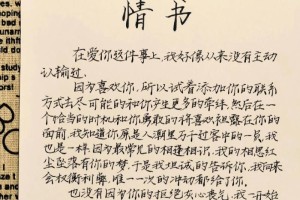 情书
在爱你这件事上,我好像从来没有主动
认输过。
因为喜欢你,所以试着添加你的联系
方式去尽可能的和你产生更多的牵绊,然后在一
个恰当的时机和你勇敢的将喜欢袒露在你的
面前,我知道你原是人潮里万千过客中的一员,我
也是一样,因为数常见的相逢相识,我的相思红
尘坠落有你的梦,于是我坦诚的告诉你,我向来
会权衡利弊,唯一一次的冲动都给了你。
也没有因为你的拒绝灰心丧气,我一开始